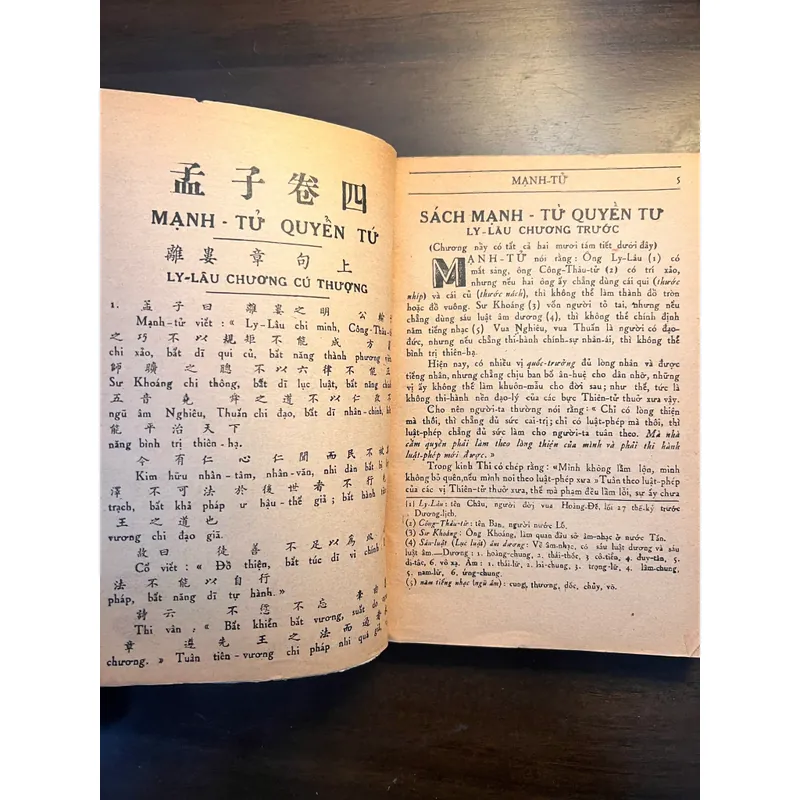 孟子卷四
MẠNH - TỬ QUYỂN TỨ
離婁章句上
LY-LÂU CHƯƠNG CÚ THƯỢNG
1. 孟子曰離婁之明公輸
Mạnh-tử viết : « Ly-Lâu chi minh, Công-Thâu-
之巧不以規矩不能成方
chi xảo, bất dĩ qui củ, bất năng thành phương
師曠之聰不以六律不能
Sư Khoáng chi thông, bất dĩ lục luật, bất năng
五音堯舜之道不以仁
ngũ âm Nghiêu, Thuấn chi đạo, bất dĩ nhân-chính,
能平治天下
năng bình trị thiên-hạ.
今有仁心仁聞而民不
Kim hữu nhân-tâm, nhân-văn, nhi dân bất
澤不可法於後世者不行
trạch, bất khả pháp ư hậu-thế giả ; bất hành
王之道也
vương chi đạo giã.
故曰徒善不足以為
Cố viết : « Đồ thiện, bất túc dĩ vi chính
法不能以自行
pháp, bất năng dĩ tự hành. »
詩云不愆不忘
Thi vân : « Bất khiên bất vương, suất do
章遵先王之法而過者
chương. » Tuân tiên-vương chi pháp nhi quá giả,
MẠNH-TỬ 5
SÁCH MẠNH - TỬ QUYỂN TƯ
LY-LÂU CHƯƠNG TRƯỚC
(Chương này có tất cả hai mươi tám tiết dưới đây)
MẠNH-TỬ nói rằng : Ông Ly-Lâu (1) có
mắt sáng, ông Công-Thâu-tử (2) có trí xảo,
nhưng nếu hai ông ấy chẳng dùng cái qui (thước
nhíp) và cái củ (thước nách), thì không thể làm thành đồ
tròn hoặc đồ vuông. Sư Khoáng (3) vốn người tỏ tai, nhưng nếu
chẳng dùng sáu luật âm dương (4), thì không thể chính định
năm tiếng nhạc (5) Vua Nghiêu, vua Thuấn là người có đạo-
đức, nhưng nếu chẳng thi-hành chính-sự nhân-ái, thì không thể
bình trị thiên-hạ.
Hiện nay, có nhiều vị quốc-trưởng đủ lòng nhân và được
tiếng nhân, nhưng chẳng chịu ban bố ân-huệ cho dân nhờ, những
vị ấy không thể làm khuôn-mẫu cho đời sau ; như thế, tức là
không thi-hành nền đạo-lý của các bực Thiên-tử thuở xưa vậy.
Cho nên người-ta thường nói rằng : « Chỉ có lòng thiện
mà thôi, thì chẳng đủ sức cai-trị ; chỉ có luật-pháp mà thôi, thì
luật-pháp chẳng đủ sức làm cho người-ta tuân theo. Mà nhà
cầm quyền phải làm theo lòng thiện của mình và phải thi hành
luật-pháp mới được. »
Trong kinh Thi có chép rằng : «Mình không lầm lộn, mình
không bỏ quên, nếu mình noi theo luật-phép xưa » Tuân theo luật-phép
của các vị Thiên-tử thuở xưa, thế mà phạm đều lầm lỗi, sự ấy chưa
(1) Ly-Lâu : tên Châu, người đời vua Hoàng-Đế, lối 27 thế-kỷ trước
Dương-lịch.
(2) Công-Thâu-tử : tên Ban, người nước Lỗ.
(3) Sư Khoáng : Ông Khoáng, làm quan đầu sở âm-nhạc ở nước Tấn.
(4) Sáu-luật (Lục luật) âm dương : Về âm-nhạc, có sáu luật dương và sáu
luật âm.—Dương : 1. hoàng-chung, 2. thái-thốc, 3. cô-tiển, 4. duy-tân, 5.
di-tắc, 6. vô xạ. Âm : 1. thái-lữ, 2. lai-chung, 3. trọng-lữ, 4. lâm-chung,
5. nam-lữ, 6. ứng-chung.
(5) năm tiếng nhạc (ngũ âm) : cung, thương, dốc, chủy, võ.